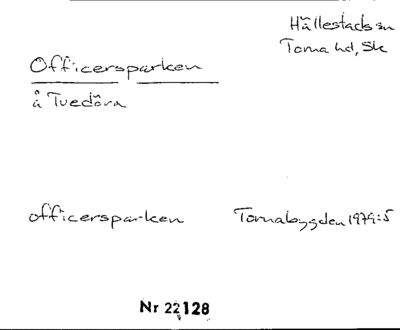 Hällestads sn
Torna hd, Sk
Officersparken
å Tvedöra
officersparken Tornabygden 1979:5
Nr 22128